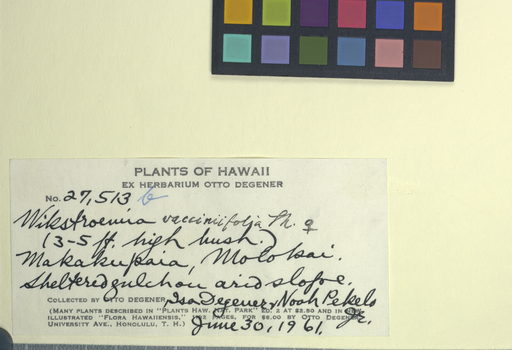 PLANTS OF HAWAII
EX HERBARIUM OTTO DEGENER
No. 27,513 b
Wikstroemia vacciniifolia ♀
(3-5 ft. high bush.)
Makakupaia, Molokai.
Sheltered gulch on arid slope.
COLLECTED BY OTTO DEGENER, Isa Degener, Noah Pekelo Jr.
(MANY PLANTS DESCRIBED IN "PLANTS HAW. NAT. PARK" ED. 2 AT $2.50 AND IN
ILLUSTRATED "FLORA HAWAIIENSIS," PAGES, FOR $6.00 BY OTTO DEGENER,
UNIVERSITY AVE., HONOLULU, T. H.) June 30, 1961.